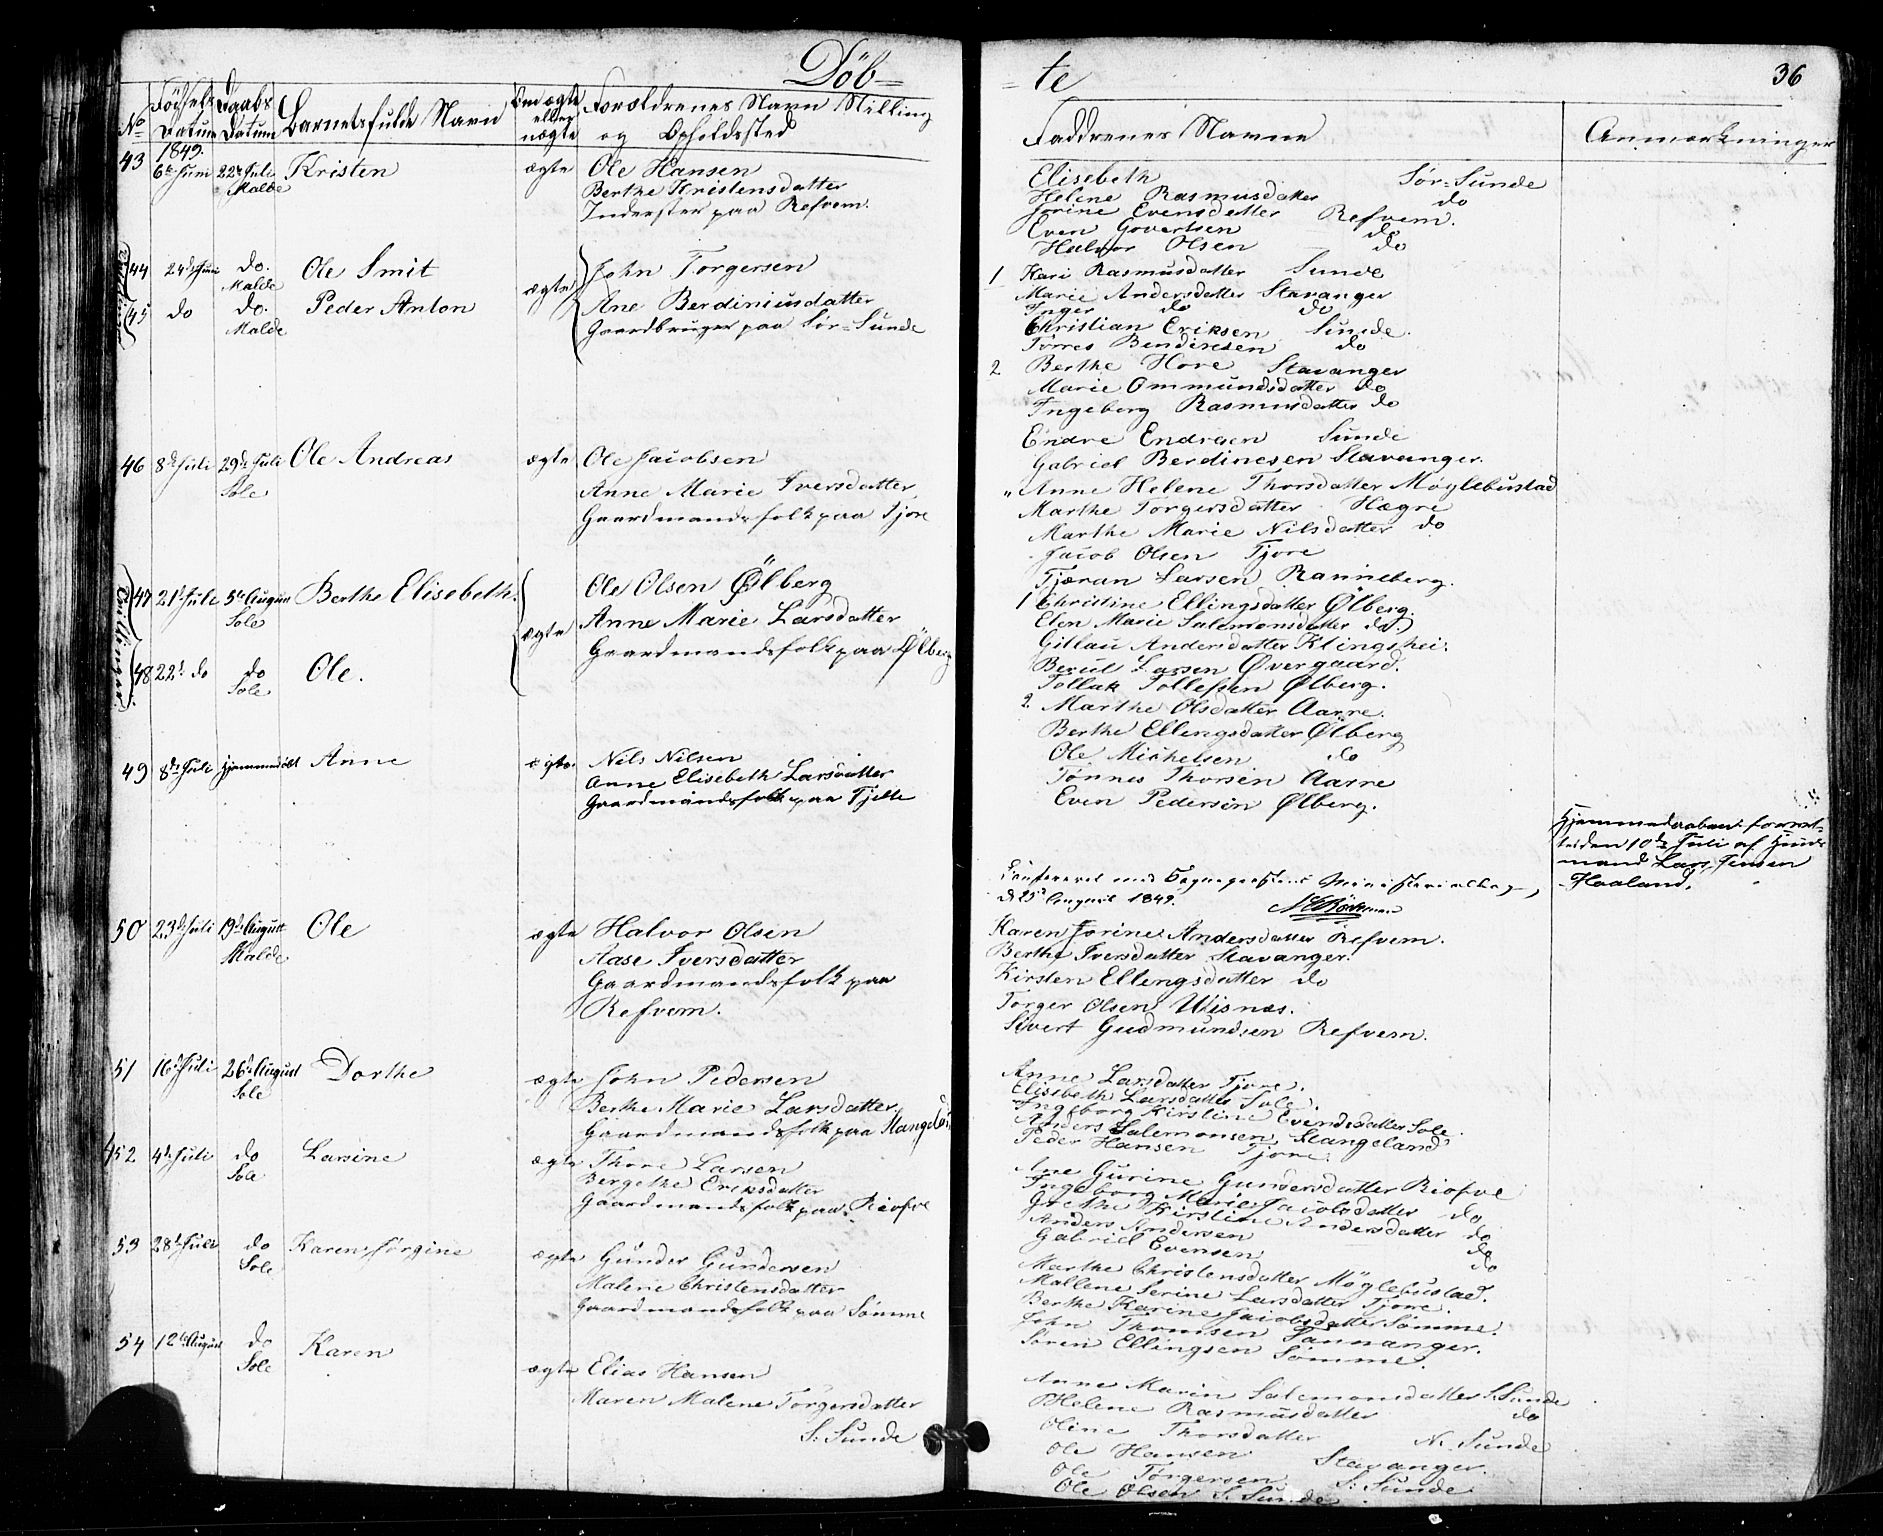 Döb-
-te
36
No
Födsels Datum
Daabs Datum
Barnets fulde Navn
Om ægte eller uægte
Forældrenes Navn Stilling og Opholdssted
Faddrenes Navne
Anmærkninger
1849.
43 6te Juni 22de Juli Malde Kristen ægte Ole Hansen
Berthe Kristensdatter
Inderster paa Refvem.
Elisebeth Sör-Sunde
Helene Rasmusdatter do
Jorine Evensdatter Refvem.
Even Govertsen do
Halvor Olsen do
Tvillinger
44 24de Juni do. Malde Ole Smit
45 do do. Malde Peder Anton
ægte
John Torgersen
Ane Berdiniusdatter
Gaardbruger paa Sör-Sunde
1 Kari Rasmusdatter Sunde
Marie Andersdatter Stavanger
Inger do do
Christian Eriksen Sunde.
Törres Bendixen do
2 Berthe Hove Stavanger
Marie Ommundsdatter do
Ingeborg Rasmusdatter do
Endre Endresen Sunde
Gabriel Berdinesen Stavanger.
46 8de Juli 29de Juli Sole Ole Andreas ægte Ole Jacobsen
Anne Marie Iversdatter
Gaardmandsfolk paa Tjore
" Anne Helene Thorsdatter Möglebustad
Marthe Torgersdatter Hægre
Marthe Marie Nilsdatter do
Jacob Olsen Tjore
Tjæran Larsen Ranneberg.
Tvillinger.
47 21de Juli 5te August Sole Berthe Elisebeth.
48 22de do do Sole Ole.
ægte
Ole Olsen Ölberg
Anne Marie Larsdatter
Gaardmandsfolk paa Ölberg
1 Christine Ellingsdatter Ölberg.
Elen Marie Salemonsdatter do.
Gillau Andersdatter Klingshei.
Berul Larsen Övergaard.
Tollak Tollefsen Ölberg.
2. Marthe Olsdatter Aarre.
Berthe Ellingsdatter Ölberg
Ole Michelsen do
Tönnes Thorsen Aarre
Even Pedersen Ölberg.
49 8de Juli hjemmedöbt Anne ægte. Nils Nilsen
Anne Elisebeth Larsdatter
Gaardmandsfolk paa Tjelte
Hjemmedaaben forret-
tet den 10de Juli af Huus-
mand Lars Jensen
Haaland.
Confereret med Sognepræstens Ministerialbog,
d. 25de August 1849.
50 23de Juli 19de August Malde Ole ægte Halvor Olsen
Aase Iversdatter
Gaardmandsfolk paa
Refvem.
Karen Jorine Andersdatter Refvem.
Berthe Iversdatter Stavanger.
Kirsten Ellengsdatter do
Torger Olsen Wisnæs.
Sivert Gudmundsen Refvem.
51 16de Juli 26de August Sole Dorthe ægte John Pedersen
Berthe Marie Larsdatter
Gaardmandsfolk paa Stangeland
Anne Larsdatter Tjore.
Elisebeth Larsdatter Sole.
Ingeborg Kirstine Evendsdatter Sole.
Anders Salemonsen Stangeland
Peder Hansen Tjore.
52 4de Juli do Sole Larsine ægte Thore Larsen
Bergethe Eriksdatter
Gaardmandsfolk paa Risfve
Ane Gurine Gundersdatter Risfve
Ingeborg Marie Jacobsdatter do
Grethe Kirstine Andersdatter do
Anders Andersen do
Gabriel Evensen do
53 28de Juli do Sole Karen Jörgine ægte Gunder Gundersen
Malene Christensdatter
Gaardmandsfolk paa Sömme
Marthe Christensdatter Möglebustad.
Mallene Serine Larsdatter Tjore.
Berthe Karine Jacobsdatter Sömme.
John Thomsen Sannanger.
Sören Ellingsen Sömme.
54 12te August do Sole Karen ægte Elias Hansen
Maren Malene Torgersdatter
S: Sunde
Anne Marin Salemonsdatter S. Sunde
Helene Rasmusdatter do
Oline Thorsdatter N. Sunde
Ole Hansen Stavanger.
Ole Törgersen S: Sunde
Ole Olsen S. Sunde